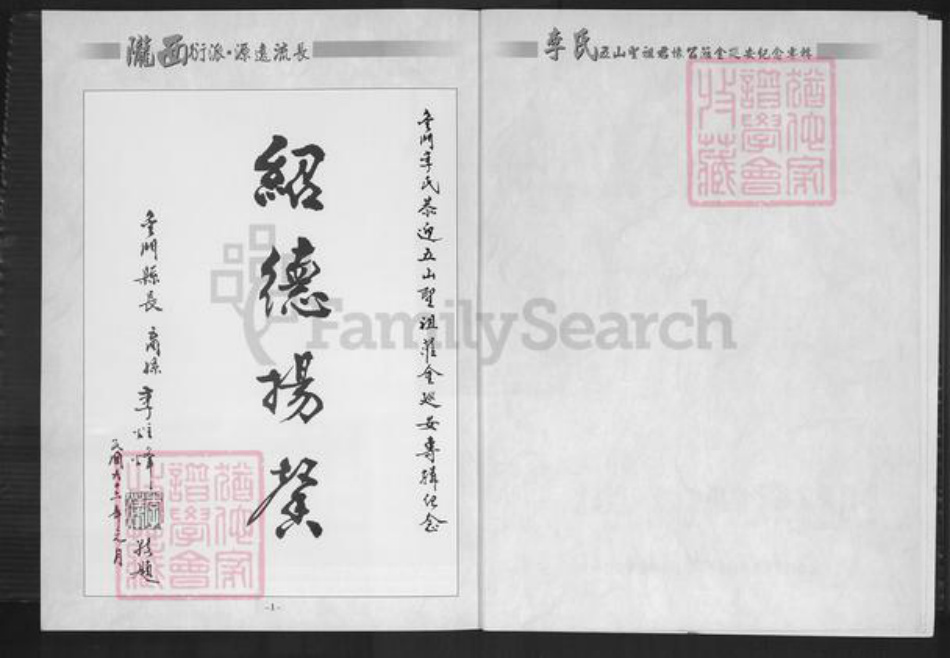 隴西衍派·源遠流長
金門李氏恭迎五山聖祖蒞金巡安專輯紀念
紹德揚馨
金門縣長 裔孫 李炷烽 敬題
民國九十三年元月
-1-
李氏五山聖祖君懷公蒞金巡安紀念專輯
譜學會
收藏
譜學會
收藏
FamilySearch